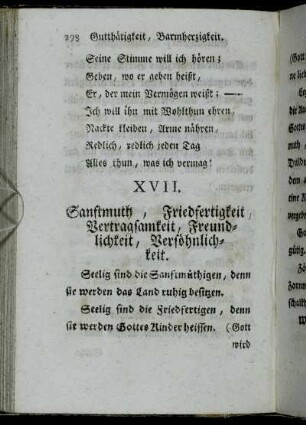 298 Gutthätigkeit, Barmherzigkeit.
Seine Stimme will ich hören;
Geben, wo er geben heißt,
Er, der mein Vermögen weißt; —
Ich will ihn mit Wohlthun ehren,
Nackte kleiden, Arme nähren,
Redlich, redlich jeden Tag
Alles thun, was ich vermag!
XVII.
Sanftmuth, Friedfertigkeit,
Vertragsamkeit, Freund-
lichkeit, Versöhnlich-
keit.
Seelig sind die Sanftmüthigen, denn
sie werden das Land ruhig besitzen.
Seelig sind die Friedfertigen, denn
sie werden Gottes Kinder heissen. (Gott
wird